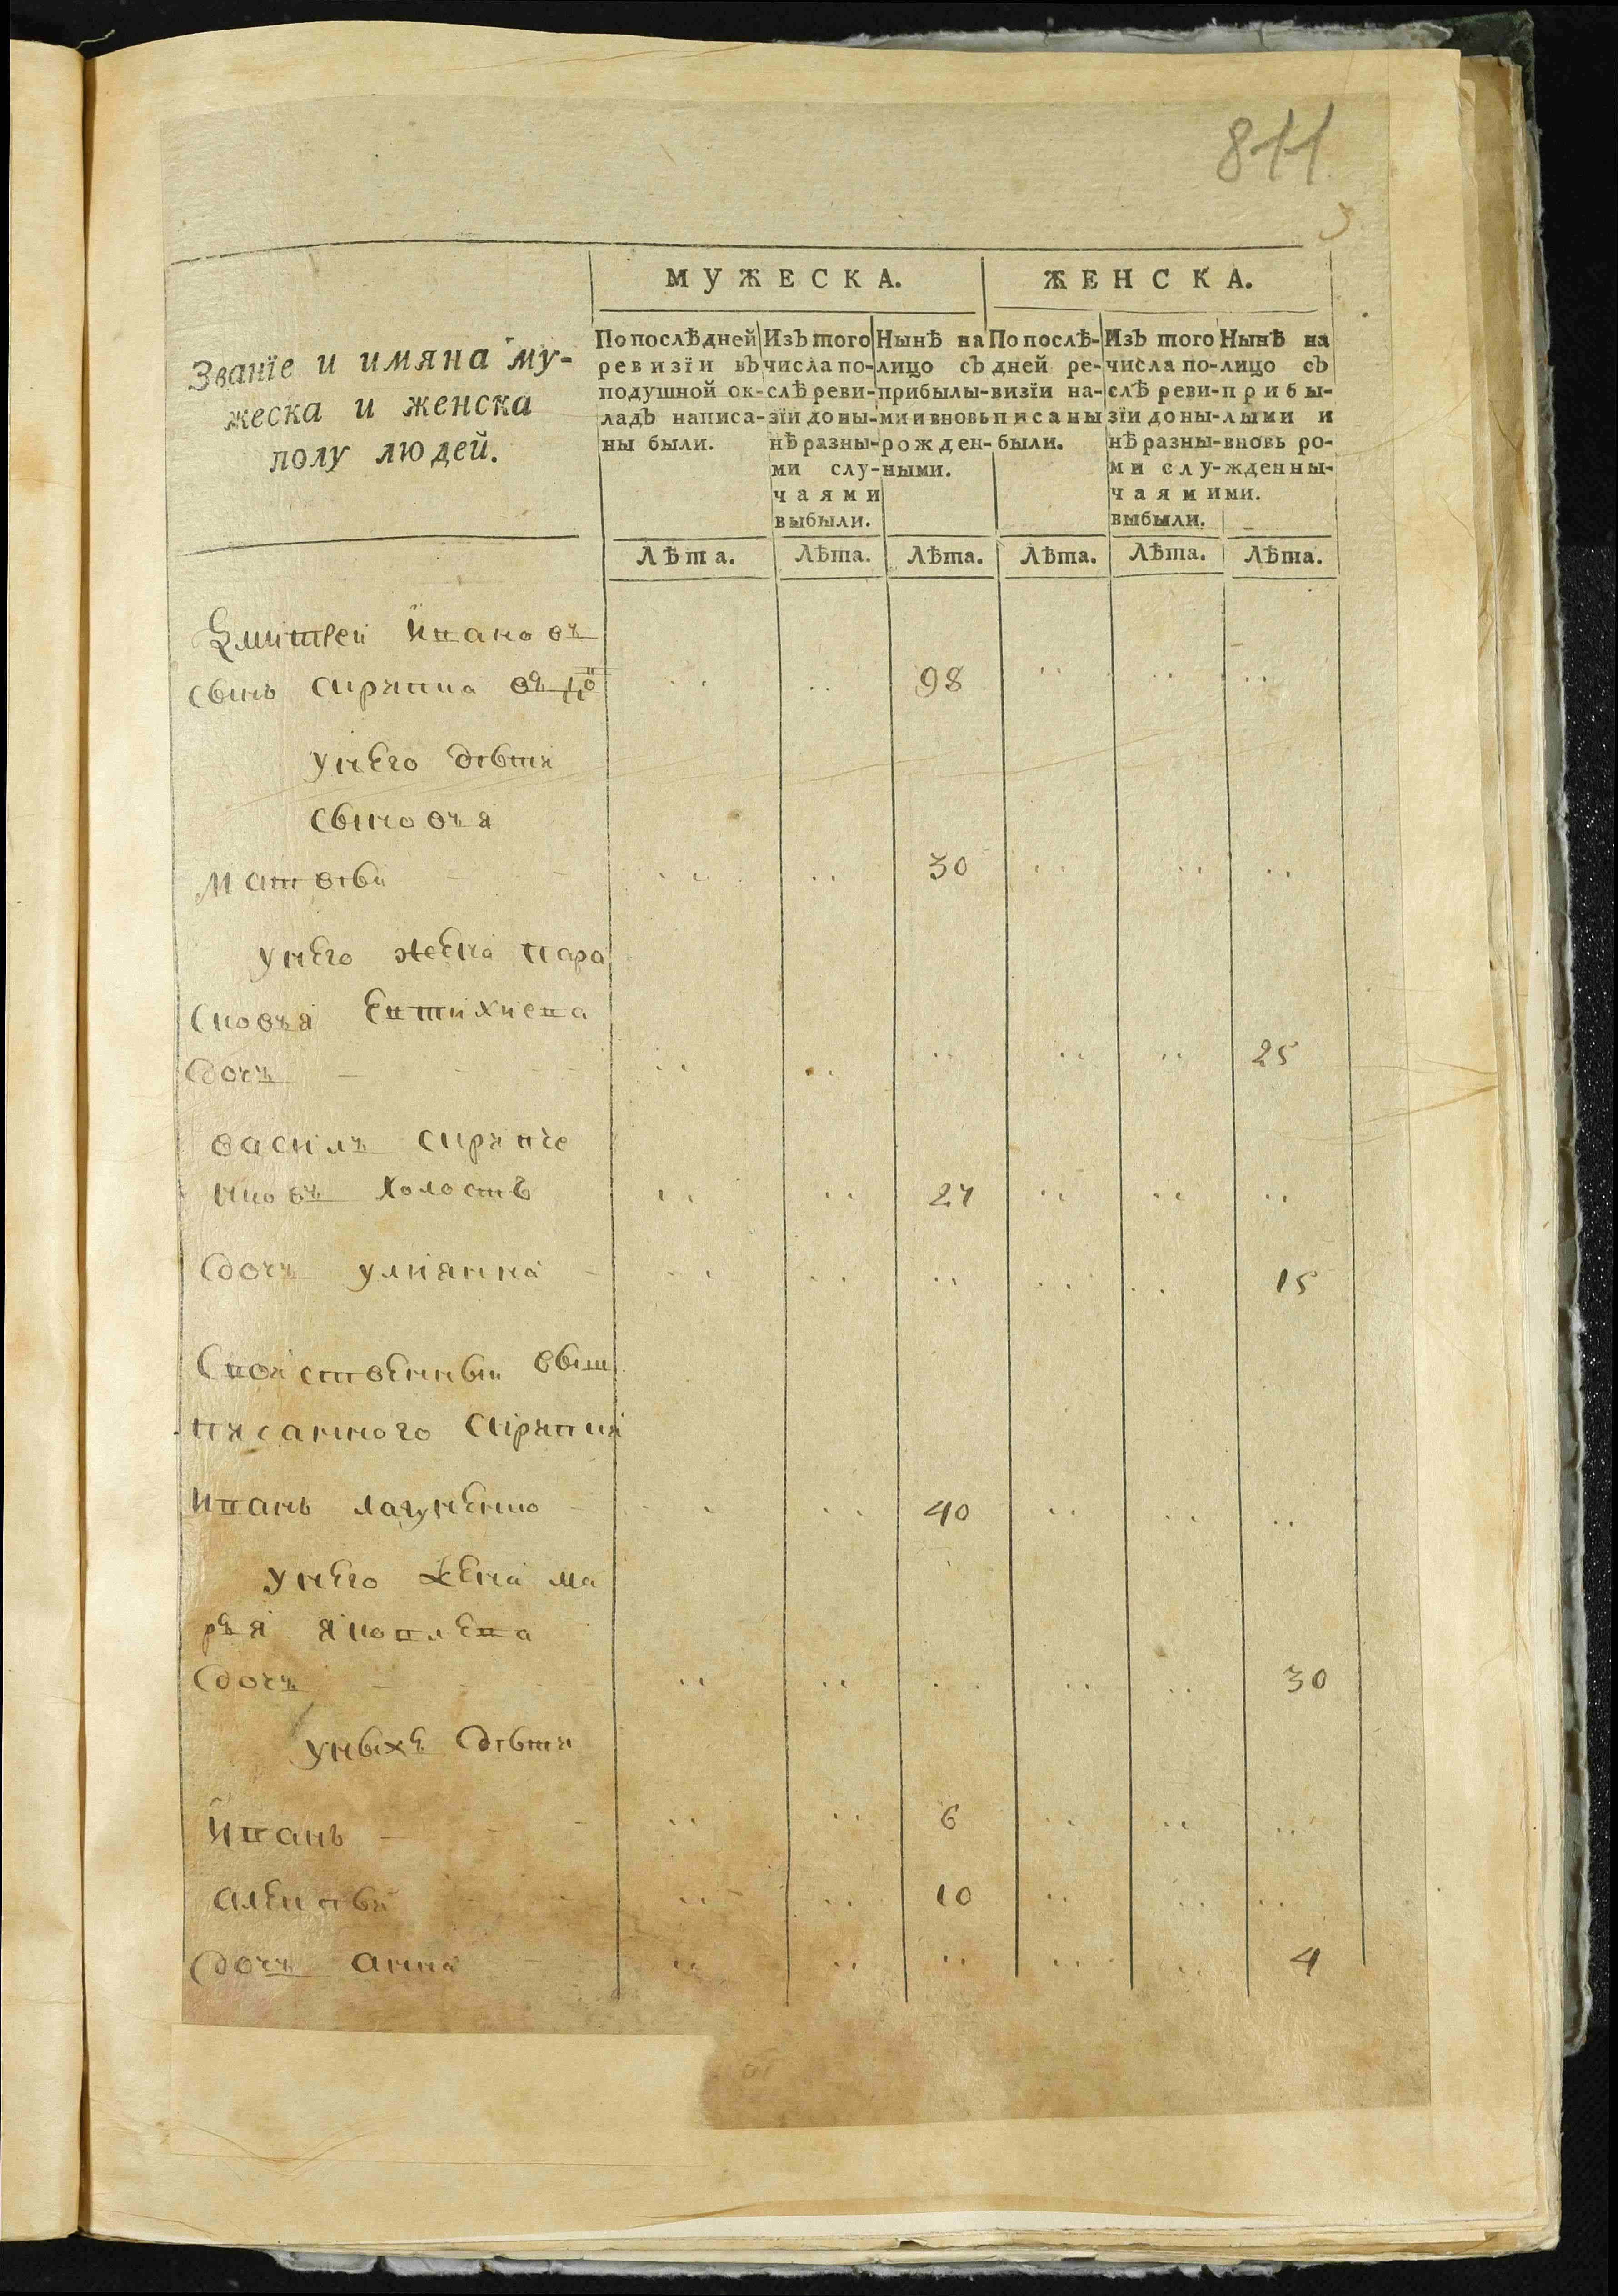 811
3
МУЖЕСКА. ЖЕНСКА.
Званїе и имяна му-
жеска и женска
полу людей.
По послѣдней
ревизїи въ
подушной ок-
ладъ написа-
ны были.
Изъ того
числа по-
слѣ реви-
зїи до ны-
нѣ разны-
ми слу-
чаями
выбыли.
Нынѣ на
лицо съ
прибылы-
ми и вновь
рожден-
ными.
По послѣ-
дней ре-
визїи на-
писаны
были.
Изъ того
числа по-
слѣ реви-
зїи до ны-
нѣ разны-
ми слу-
чаями
выбыли.
Нынѣ на
лицо съ
прибы-
лыми и
вновь ро-
жденны-
ми.
Лѣта. Лѣта. Лѣта. Лѣта. Лѣта. Лѣта.
Дмитрей Ивановъ
сынъ Скряпка 98
у него дѣти
сыновья
Матвѣй 30
у него жена Пара
сковья Евтихиева
дочь 25
Василь Скряпче
нковъ холостъ 27
дочь Улиянна 15
Свойственный выш
писанного Скряпки
Иванъ Лагуненко 40
у него жена Ма
рья Яковлева
дочь 30
у ныхъ дѣти
Иванъ 6
Алексѣй 10
дочь Анна 4